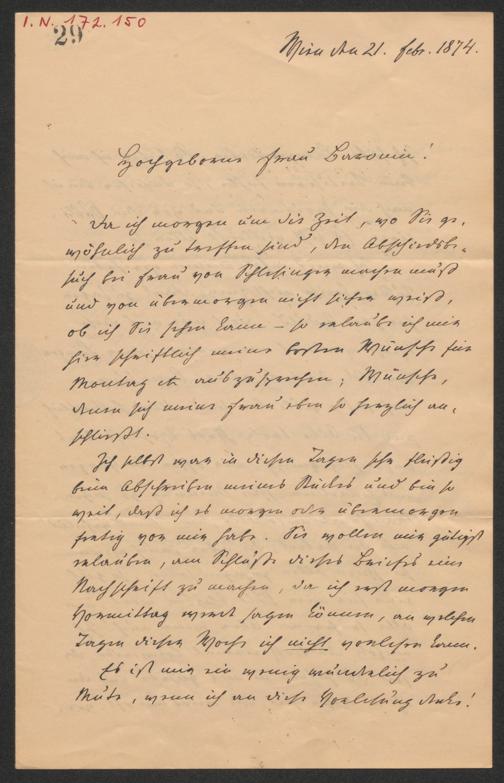 I.N. 172.150
29
Wien den 21. febr. 1874.
Hochgeborne Frau Baronin!
Da ich morgen um die Zeit, wo Sie ge-
wöhnlich zu treffen sind, den Abschiedsbe-
such bei Frau von Schlesinger machen muß
und von übermorgen nicht sicher weiß,
ob ich Sie sehen kann – so erlaube ich mir
hier schriftlich meine besten Wünsche für
Montag auszusprechen; Wünsche,
denen sich meine Frau eben so herzlich an-
schließt.
Ich selbst war in diesen Tagen sehr fleißig
beim Abschreiben meines Stückes und bin so
weit, daß ich es morgen oder übermorgen
fertig vor mir habe. Sie wollen mir gütigst
erlauben, am Schluße dieses Briefes eine
Nachschrift zu machen, da ich erst morgen
Vormittag werde sagen können, an welchen
Tagen dieser Woche ich nicht vorlesen kann.
Es ist mir ein wenig wunderlich zu
Mute, wenn ich an diese Vorlesung denke!